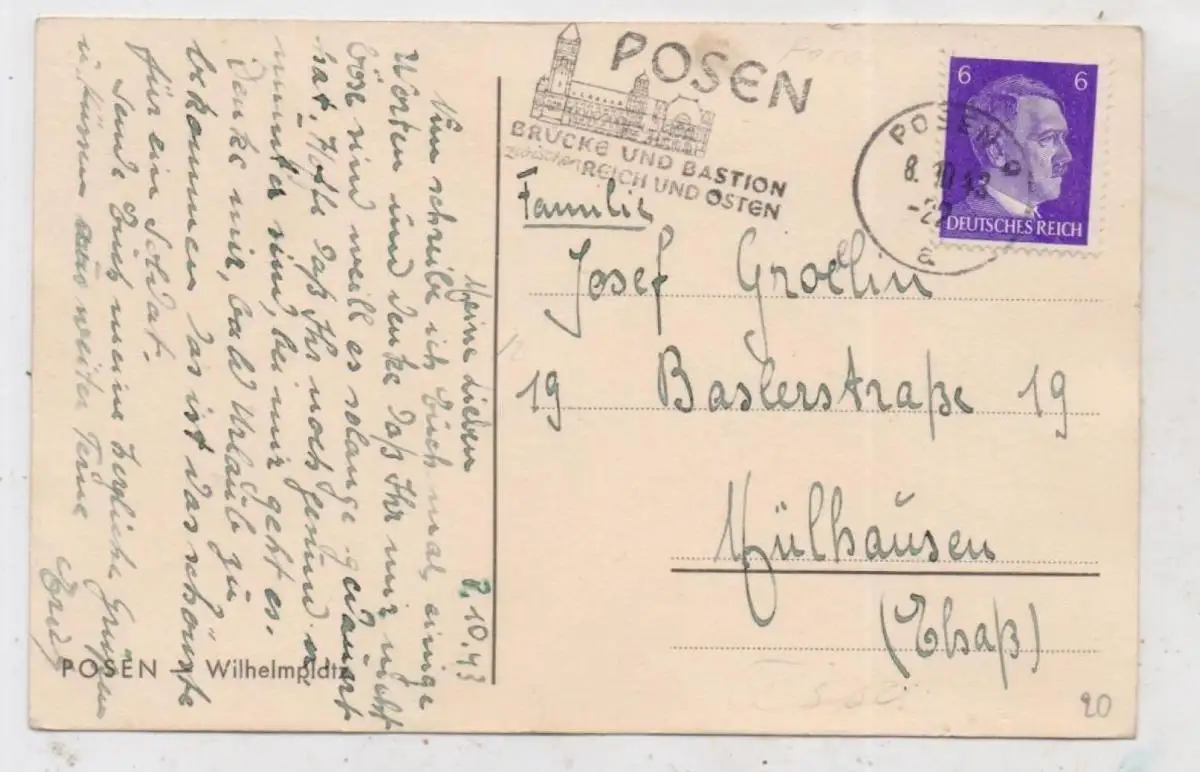 Meine Lieben 8.10.43
Nun schreibe ich Euch mal, einige
Worten und denke daß Ihr mir nicht
böse sind weill es solange gedauert
hat. Hoffe daß Ihr noch gesund u.
munter sind, bei mir geht es.
Denke mir, bald Urlaub zu
bekommen das ist das schönste
für ein Soldat.
Sende Euch meine herzliche Grüße
u. küssen aus weiter Ferne
POSEN Wilhelmplatz
POSEN
BRÜCKE UND BASTION
zwischen REICH UND OSTEN
POSEN
8.10.43
a
6 6
DEUTSCHES REICH
Familie
Josef Groelin
19 Baslerstraße 19
Mülhausen
(Elsaß)
20